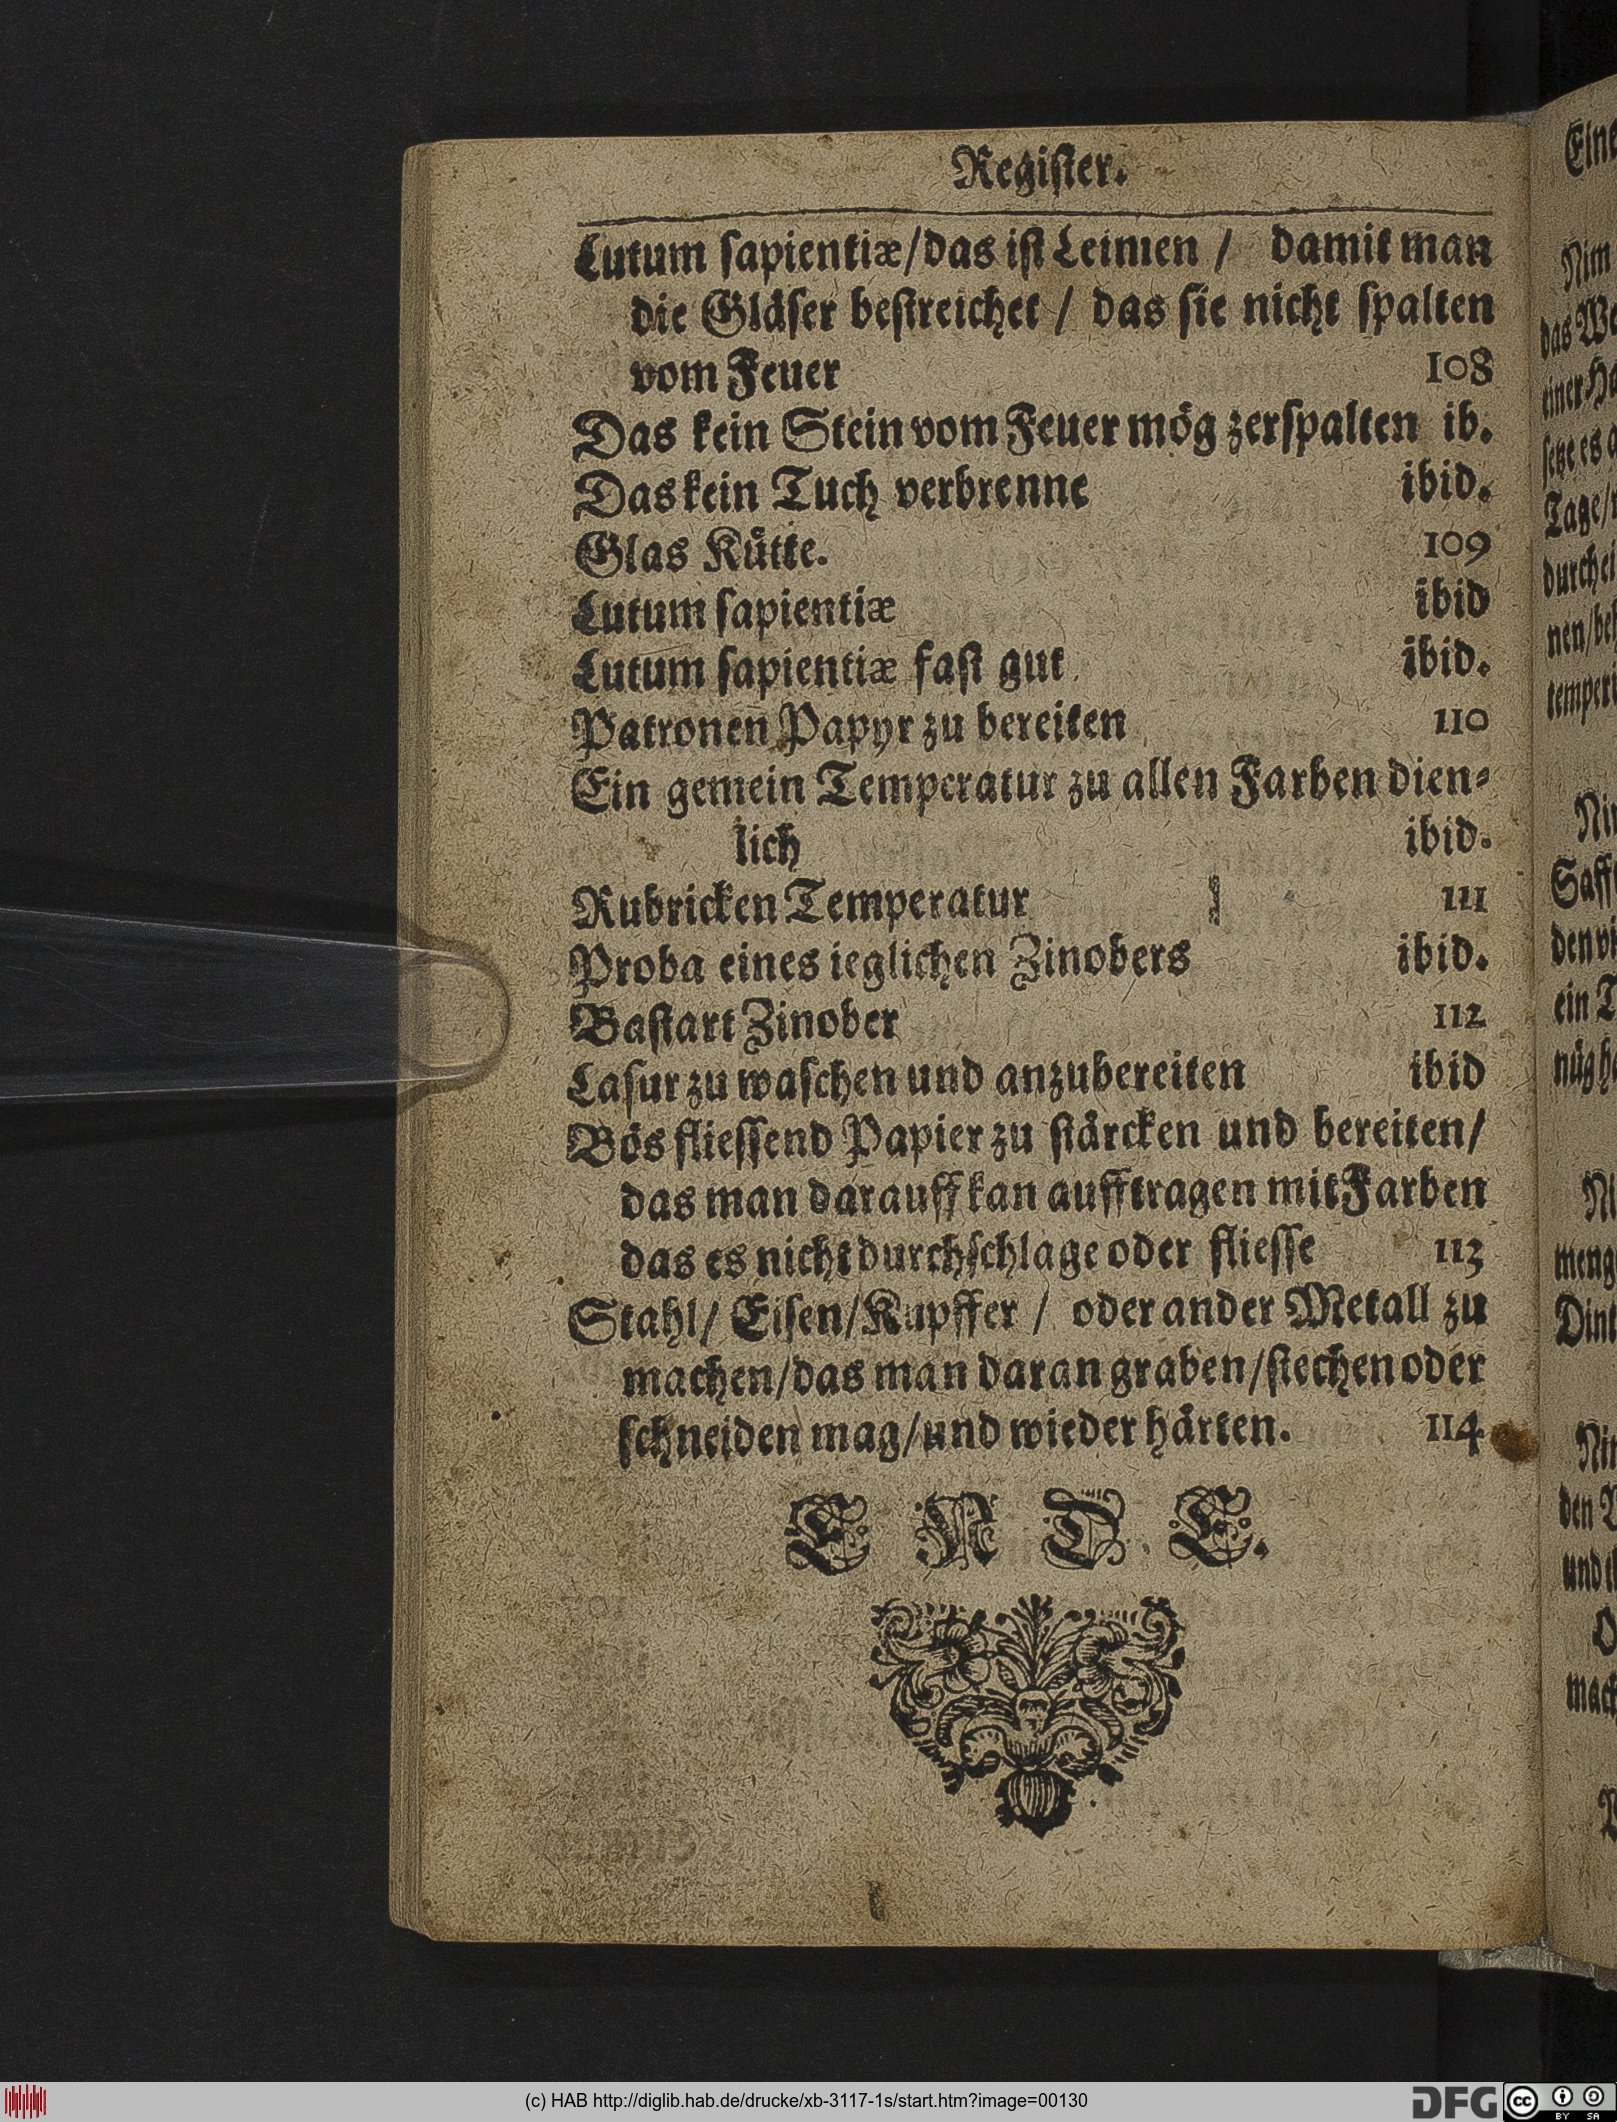 Regiſter.
Lutum ſapientiæ/das iſt Leimen / damit man
die Gläſer beſtreichet / das ſie nicht ſpalten
vom Feuer 108
Das kein Stein vom Feuer mög zerſpalten ib.
Das kein Tuch verbrenne ibid.
Glas Kütte. 109
Lutum ſapientiæ ibid
Lutum ſapientiæ faſt gut ibid.
Patronen Papyr zu bereiten 110
Ein gemein Temperatur zu allen Farben dien⸗
lich ibid.
Rubricken Temperatur 111
Proba eines ieglichen Zinobers ibid.
Baſtart Zinober 112
Laſur zu waſchen und anzubereiten ibid
Bös flieſſend Papier zu ſtärcken und bereiten/
das man darauff kan aufftragen mit Farben
das es nicht durchſchlage oder flieſſe 113
Stahl/ Eiſen/Kupffer / oder ander Metall zu
machen/das man daran graben/ſtechen oder
ſchneiden mag/und wieder härten. 114
E N D E.
Nim
einer
ſetze es
Tage/
ein
(c) HAB http://diglib.hab.de/drucke/xb-3117-1s/start.htm?image=00130
DFG
cc
BY SA